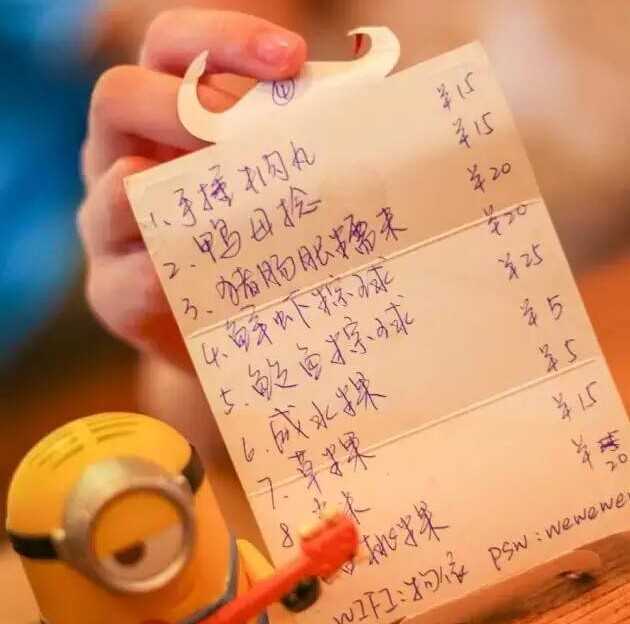 ①
1、手捶牛肉丸 ¥15
2、鸭母捻 ¥15
3、猪肠胀糯米 ¥20
4、鲜虾粽球 ¥20
5、鲍鱼粽球 ¥25
6、咸水粿 ¥5
7、草粿 ¥5
8 ¥15
桃粿 ¥ 20
WIFI: psw:wewewe